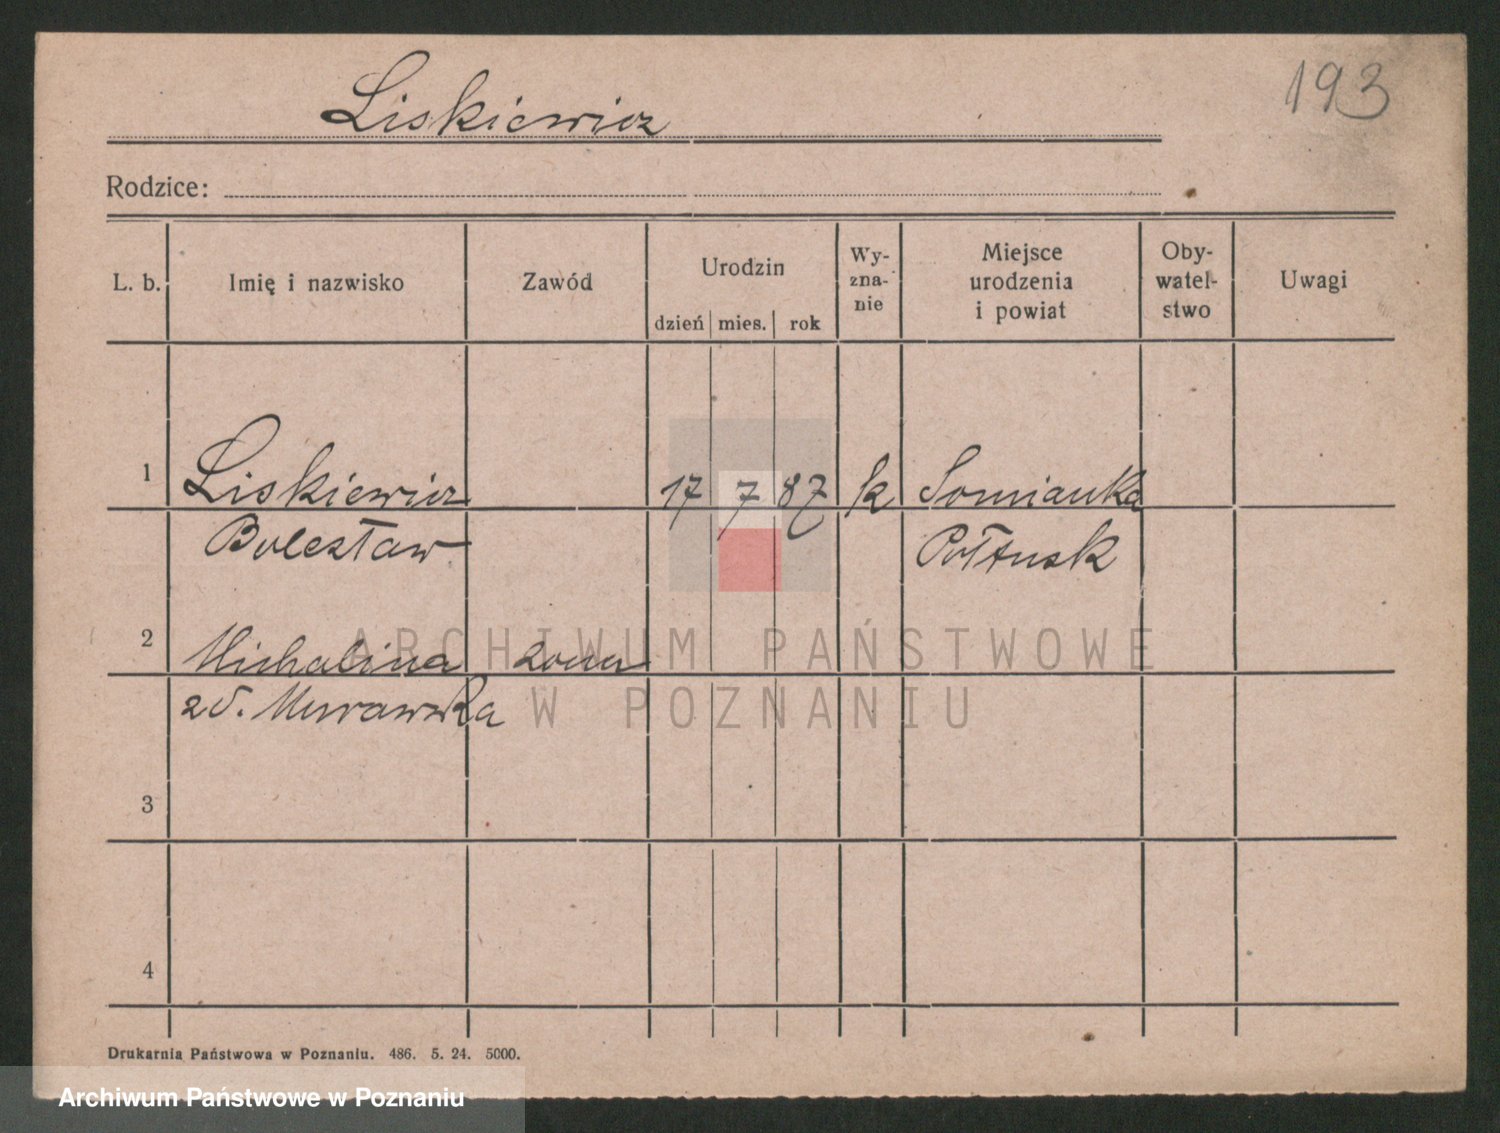 193
Liskiewicz
Rodzice:
L. b. Imię i nazwisko Zawód Urodzin dzień mies. rok Wy-zna-nie Miejsce urodzenia i powiat Oby-watel-stwo Uwagi
1 Liskiewicz 17 7 87 k Somianka
Bolesław Połtusk
2 Michalina żona
zd. Murawska
3
4
ARCHIWUM PAŃSTWOWE
W POZNANIU
Drukarnia Państwowa w Poznaniu. 486. 5. 24. 5000.
Archiwum Państwowe w Poznaniu